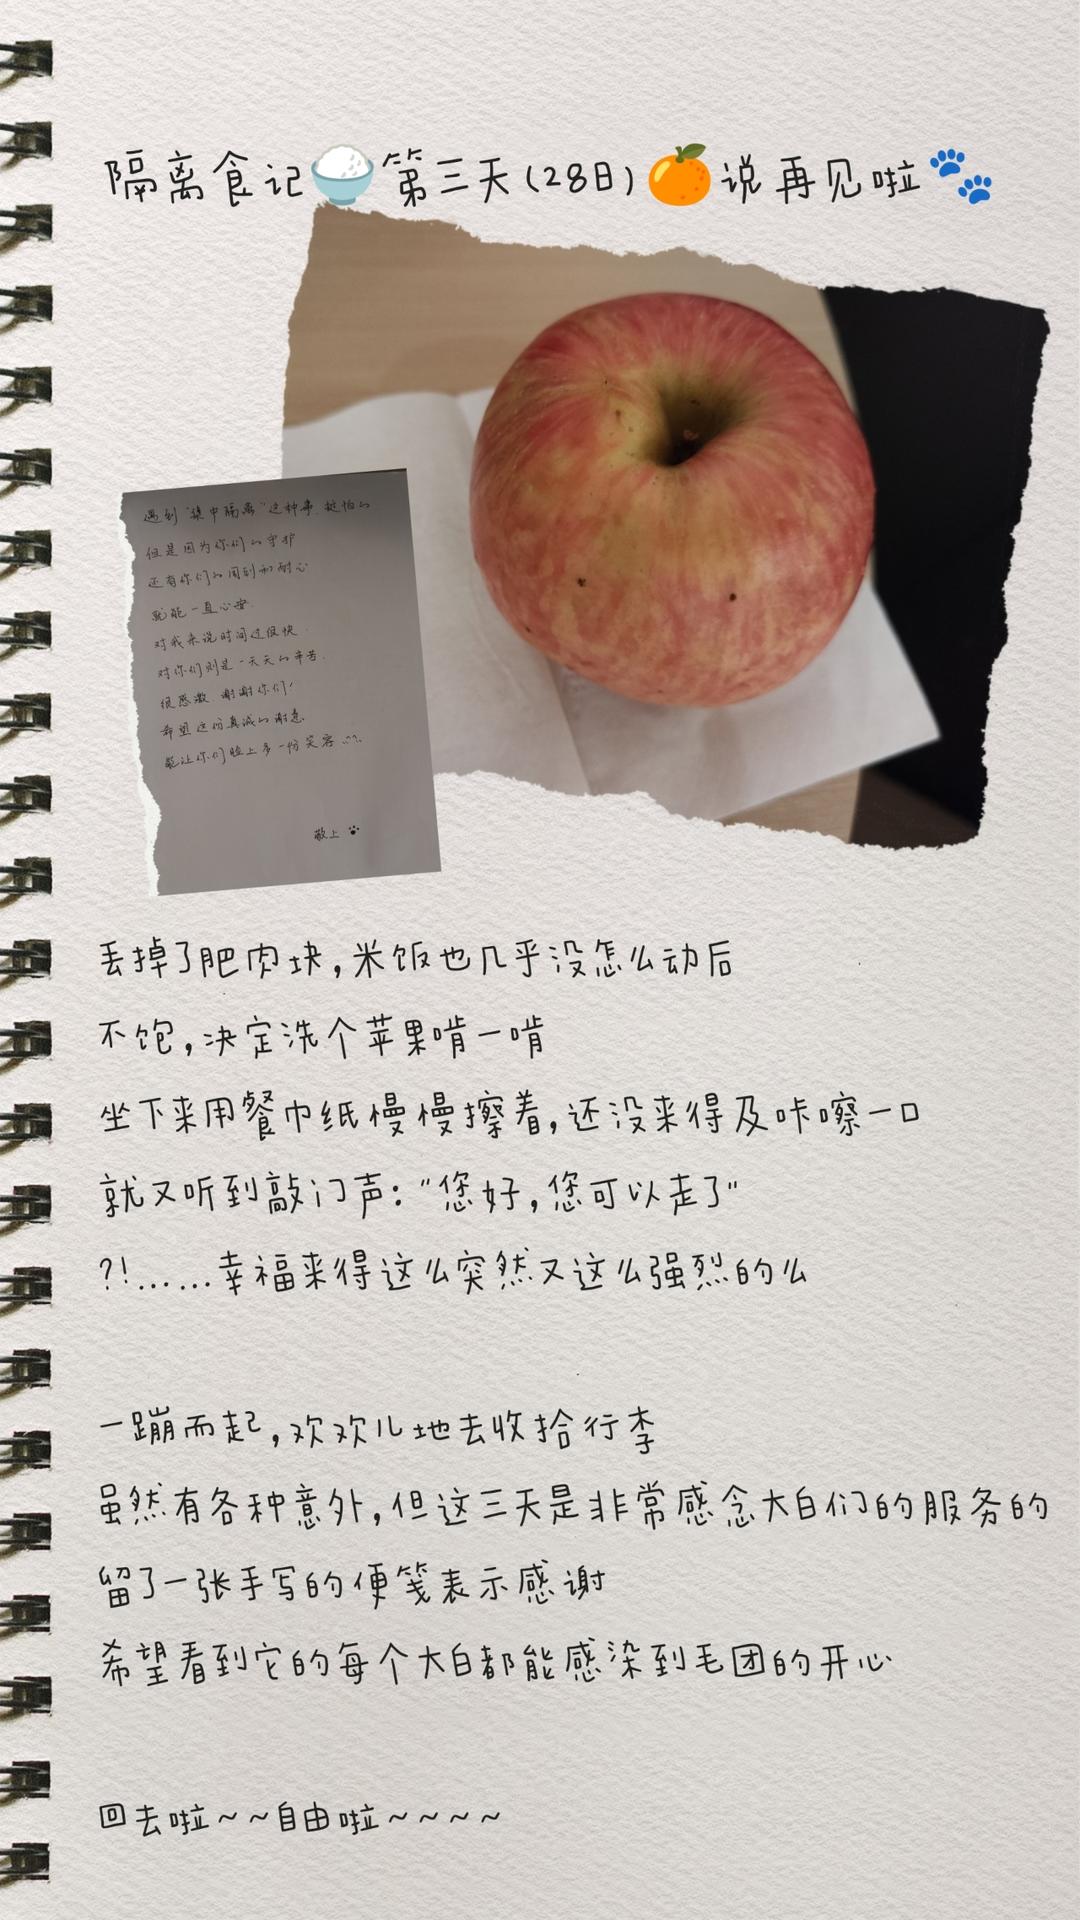 隔离食记🍚第三天(28日)🍊说再见啦🐾
遇到“集中隔离”这种事 挺怕的
但是因为你们的守护
还有你们的周到和耐心
就能一直心安.
对我来说时间过很快.
对你们则是一天天的辛苦.
很感激 谢谢你们!
希望这份真诚的谢意
能让你们脸上多一份笑容
敬上
丢掉了肥肉块,米饭也几乎没怎么动后
不饱,决定洗个苹果啃一啃
坐下来用餐巾纸慢慢擦着,还没来得及咔嚓一口
就又听到敲门声:“您好,您可以走了”
?!......幸福来得这么突然又这么强烈的么
一蹦而起,欢欢儿地去收拾行李
虽然有各种意外,但这三天是非常感念大白们的服务的
留了一张手写的便笺表示感谢
希望看到它的每个大白都能感染到毛团的开心
回去啦~~自由啦~~~~